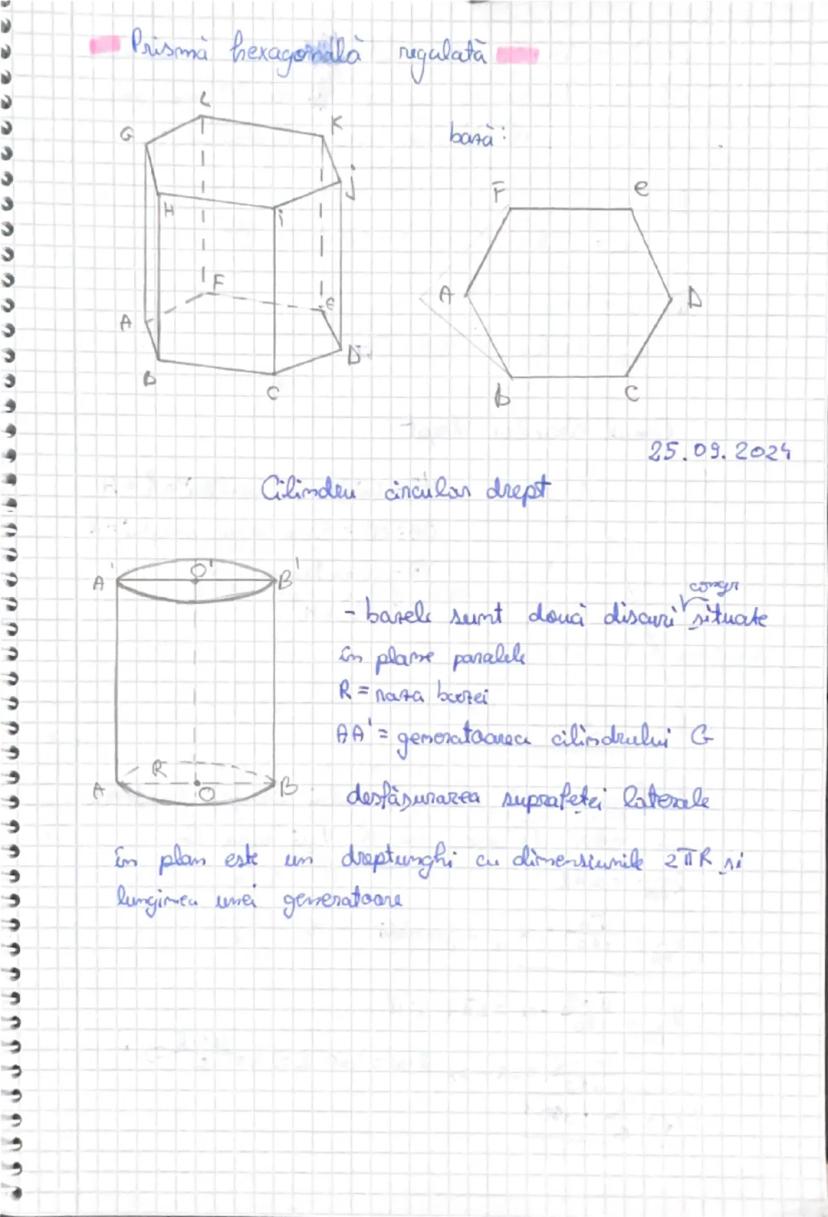 Prismă hexagonală regulată
L
G
K
bază:
J
H
i
F
e
F
A
D
A
e
D
B
C
B
C
25.09.2024
Cilindru circular drept
A' O' B'
congr
- bazele sunt două discuri situate
în plane paralele
R = raza bazei
AA' = generatoarea cilindrului G
R
A O B
desfășurarea suprafeței laterale
în plan este un dreptunghi cu dimensiunile 2πR și
lungimea unei generatoare